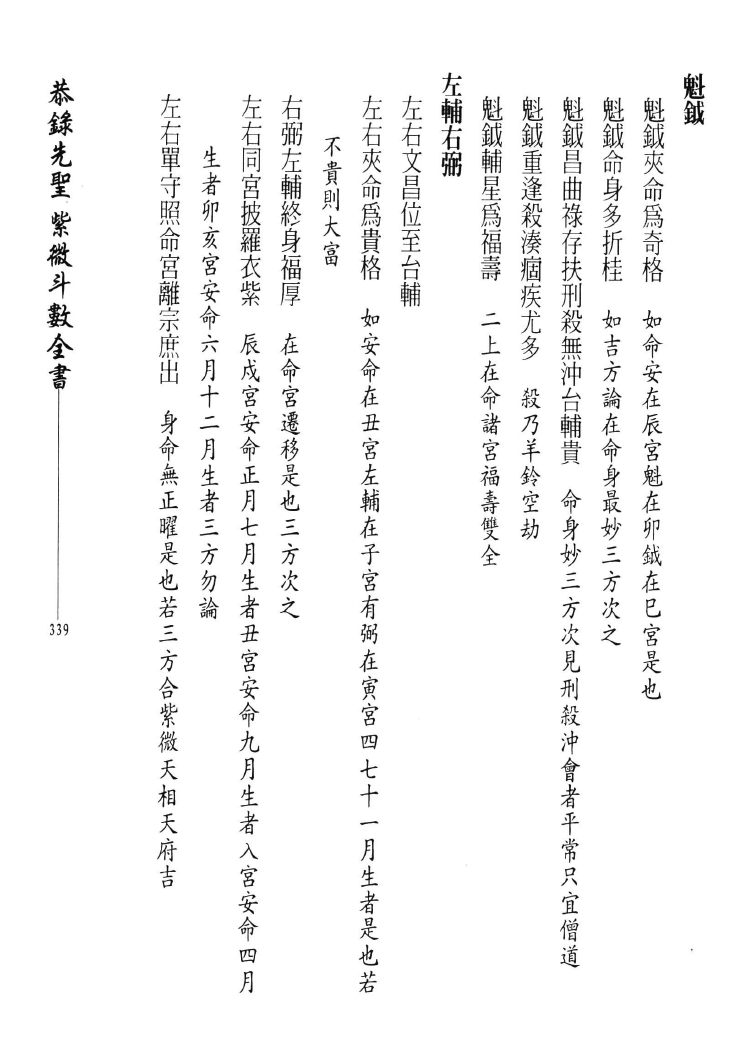 魁鉞
魁鉞夾命爲奇格　如命安在辰宮魁在卯鉞在巳宮是也
魁鉞命身多折桂　如吉方論在命身最妙三方次之
魁鉞昌曲祿存扶刑殺無沖台輔貴　命身妙三方次見刑殺沖會者平常只宜僧道
魁鉞重逢殺湊痼疾尤多　殺乃羊鈴空劫
魁鉞輔星爲福壽　二上在命諸宮福壽雙全
左輔右弼
左右文昌位至台輔
左右夾命爲貴格　如安命在丑宮左輔在子宮有弼在寅宮四七十一月生者是也若
不貴則大富
右弼左輔終身福厚　在命宮遷移是也三方次之
左右同宮披羅衣紫　辰戍宮安命正月七月生者丑宮安命九月生者入宮安命四月
生者卯亥宮安命六月十二月生者三方勿論
左右單守照命宮離宗庶出　身命無正曜是也若三方合紫微天相天府吉
恭錄先聖紫微斗數全書
339